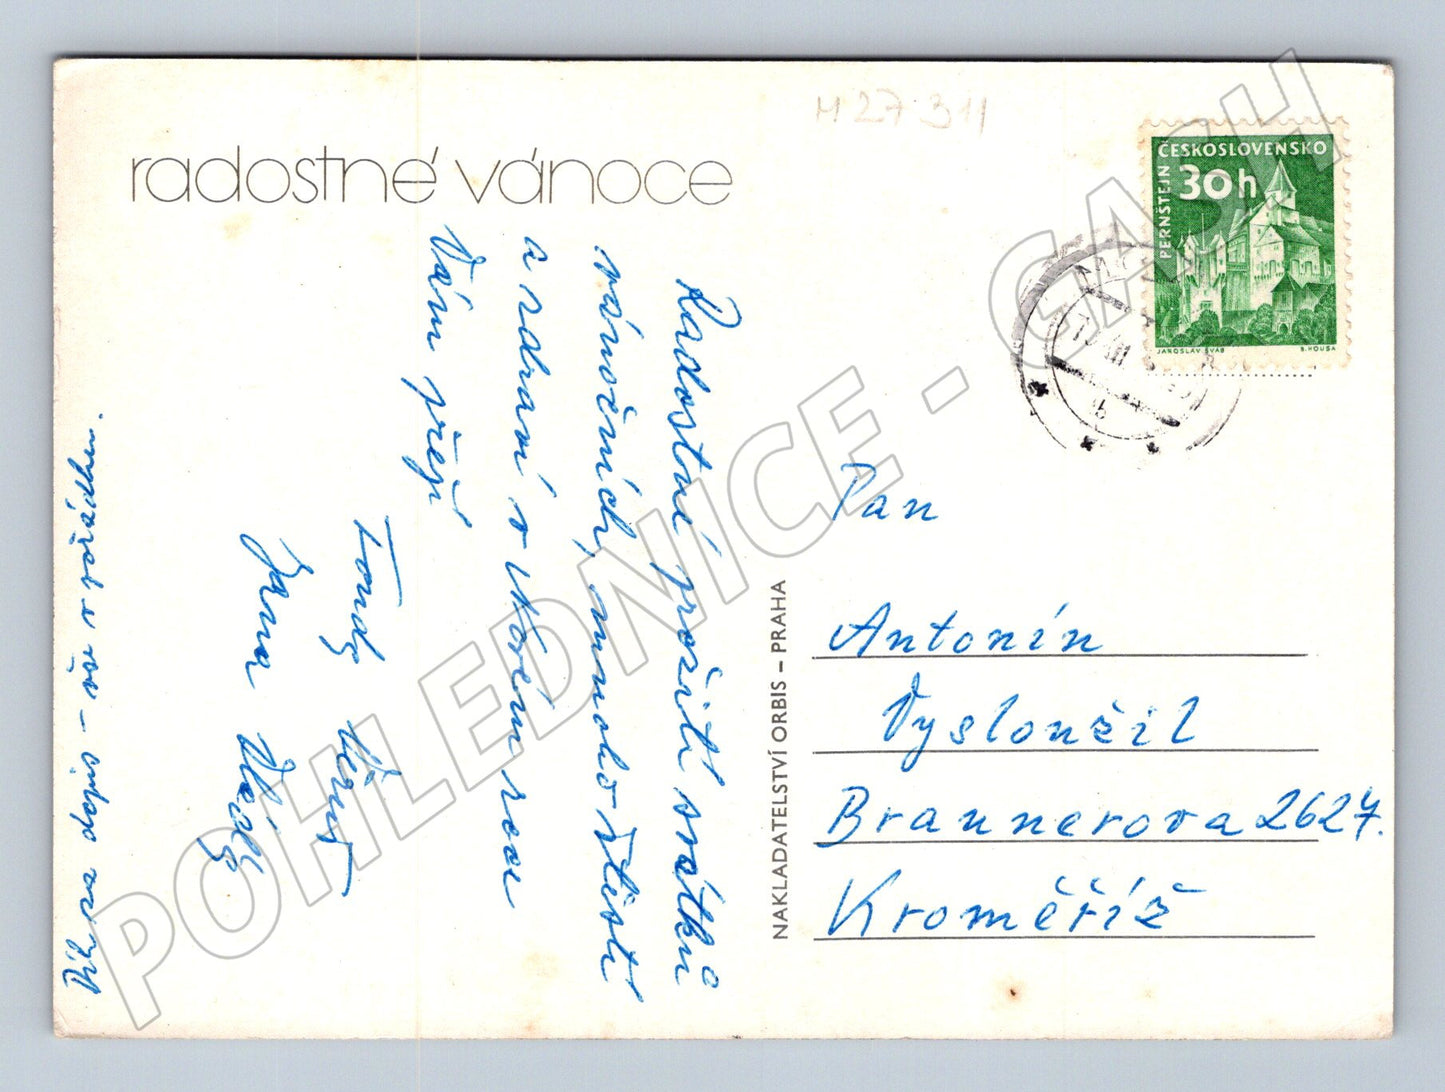 H 27 311
radostné vánoce
ČESKOSLOVENSKO
30h
PERNŠTEJN
JAROSLAV ŠVÁB
B. HOUSA
Radostné prožití svátků
vánočních, mnoho štěstí
a zdraví v Novém roce
Vám přejí
Tondy
Jana
Dík za dopis - vše v pořádku.
NAKLADATELSTVÍ ORBIS – PRAHA
Pan
Antonín
Vysloužil
Braunerova 2627.
Kroměříž
POHLEDNICE - GASH